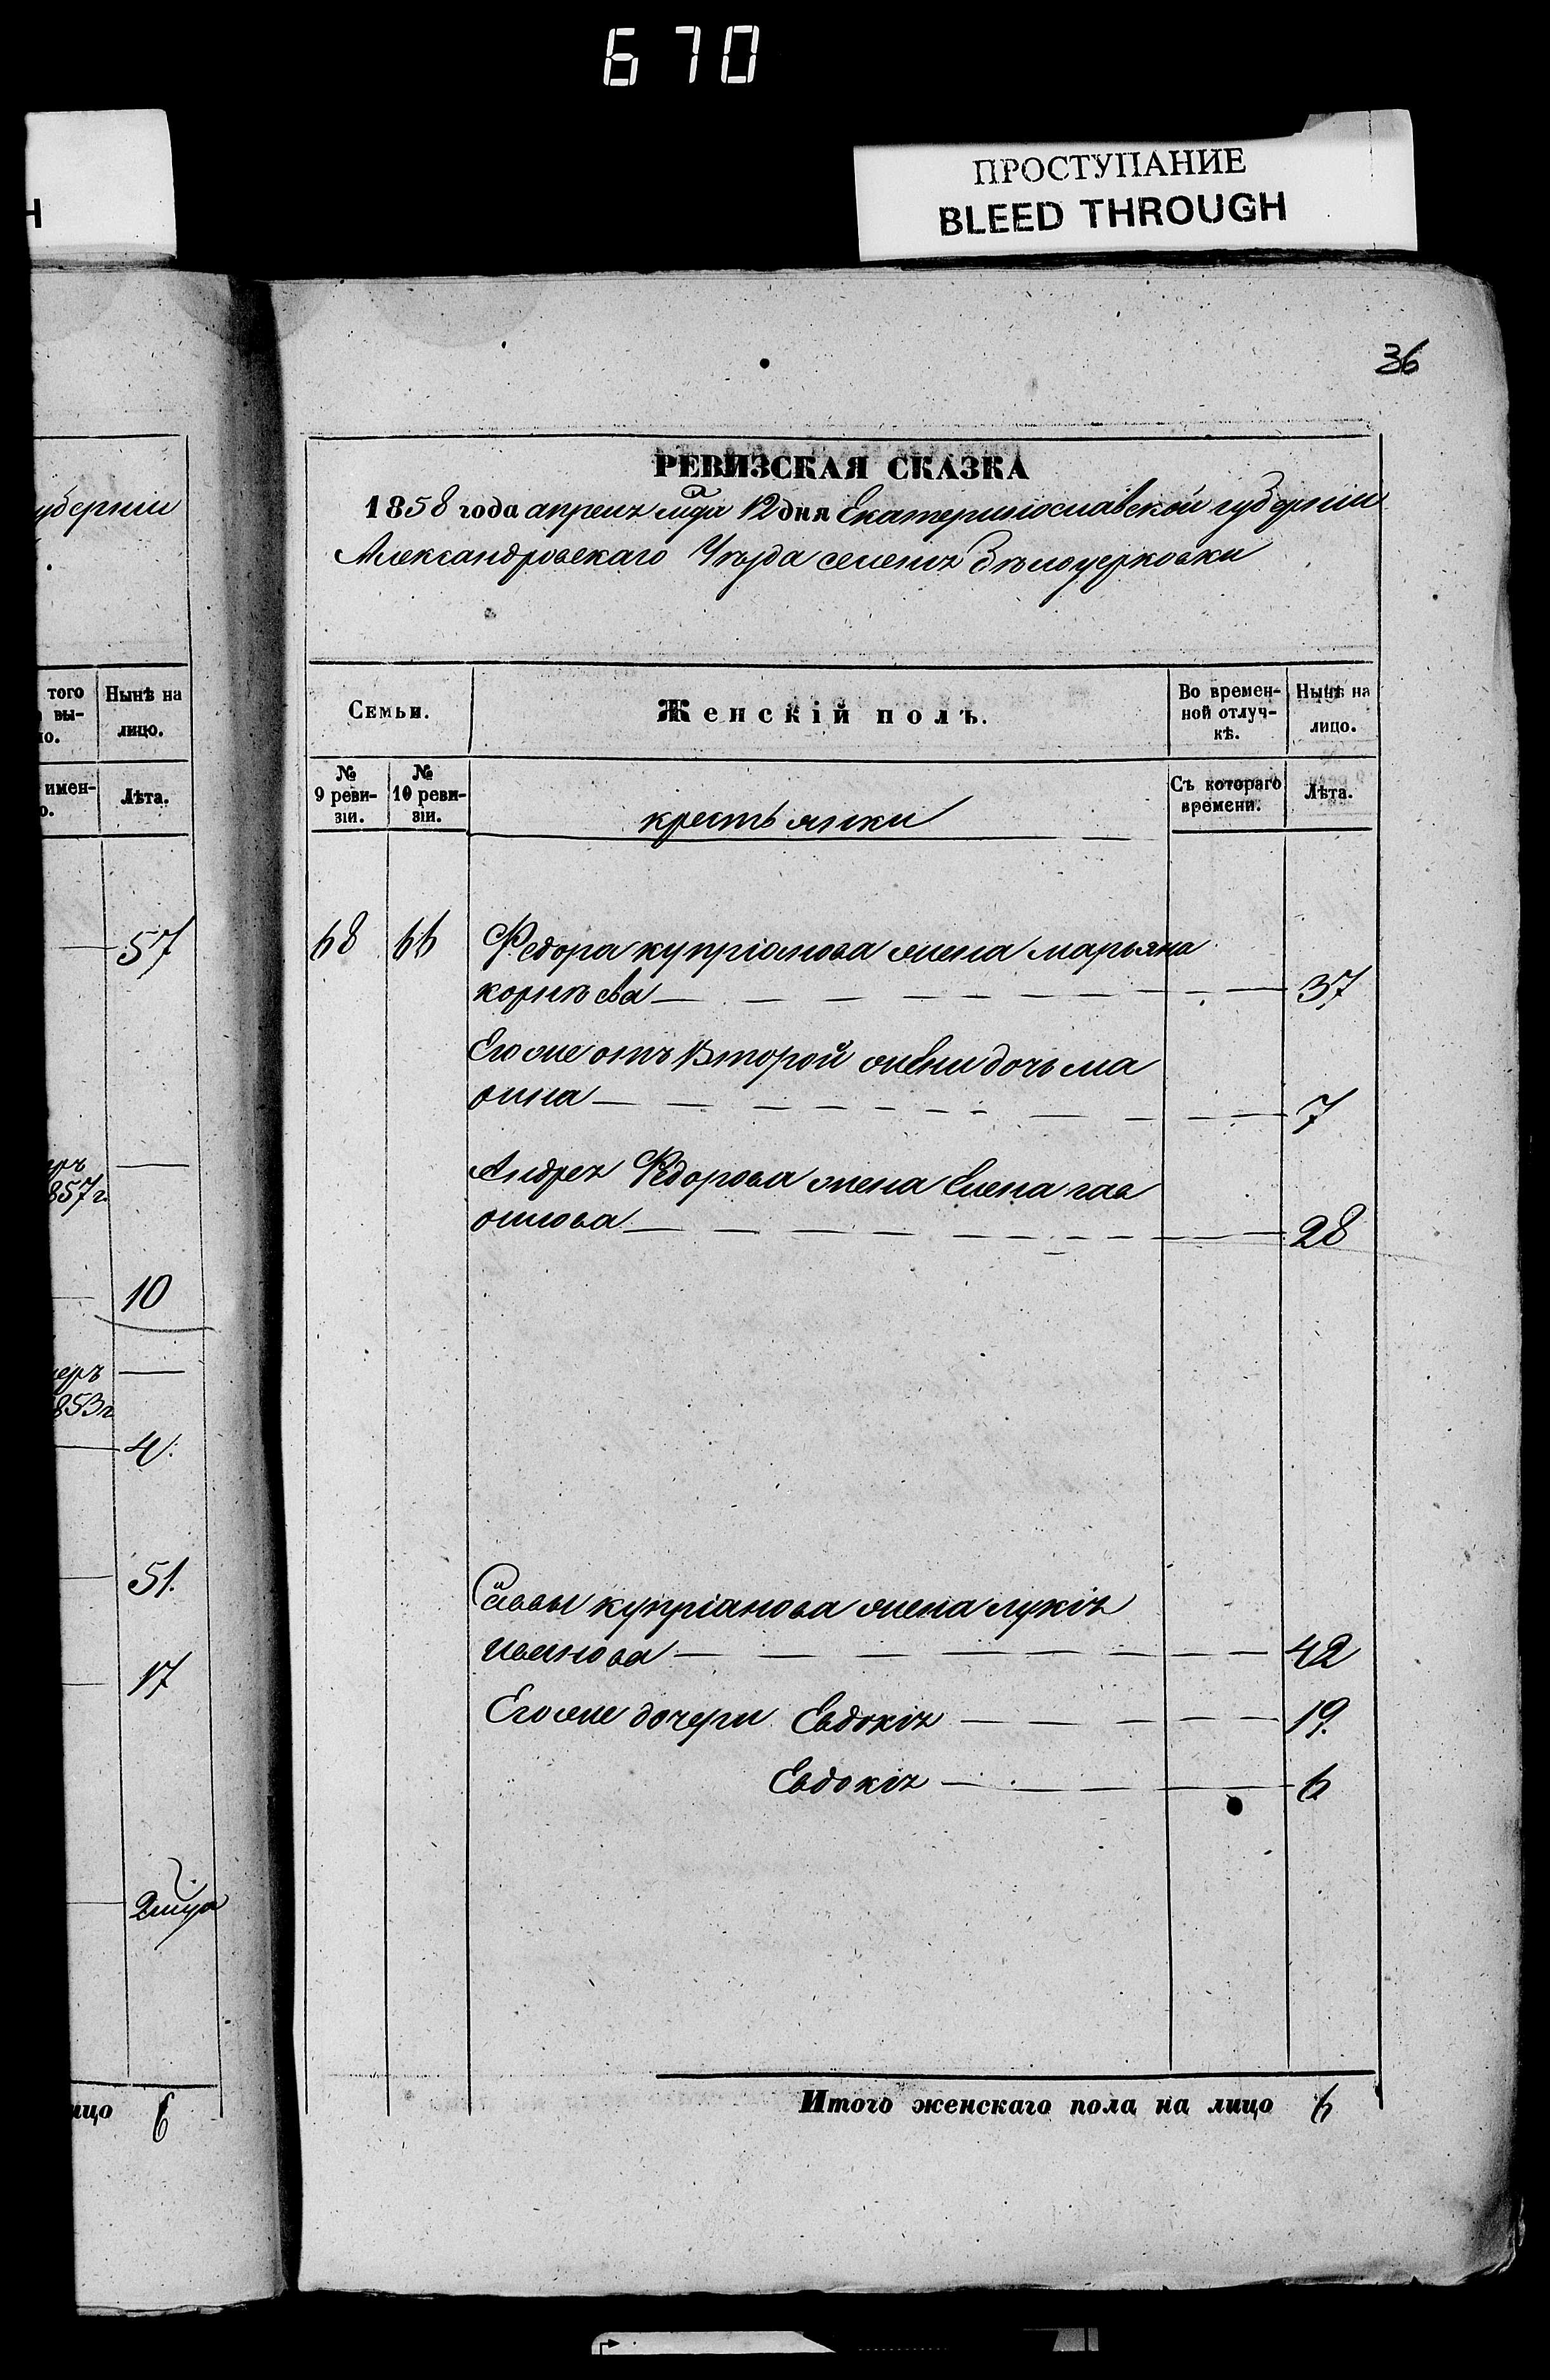 670
ПРОСТУПАНИЕ
BLEED THROUGH
Н
36
уберніи
того
вы-
ю.
Нынѣ на
лицо.
имен-
о.
Лѣта.
57
857 г.
10
853 г
4.
51.
17
2 мца
ицо 6
РЕВИЗСКАЯ СКАЗКА
1858 года апреля мца 12 дня Екатеринославской губерніи
Александровскаго Уѣзда селения Бѣлоцерковки
Семьи.
Женскій полъ.
Во времен-
ной отлуч-
кѣ.
Нынѣ на
лицо.
№
9 реви-
зіи.
№
10 реви-
зіи.
крестьянки
Съ котораго
времени.
Лѣта.
68 66 Федора купріянова жена марьяна
корнѣева 37
Его же отъ Второй жены дочь ма
7
Андрея Федорова жена Елена гав
рилова 28
Саввы купріанова жена лукія
иванова 42
Его же дочери Евдокія 19.
Евдокія 6
Итого женскаго пола на лицо 6